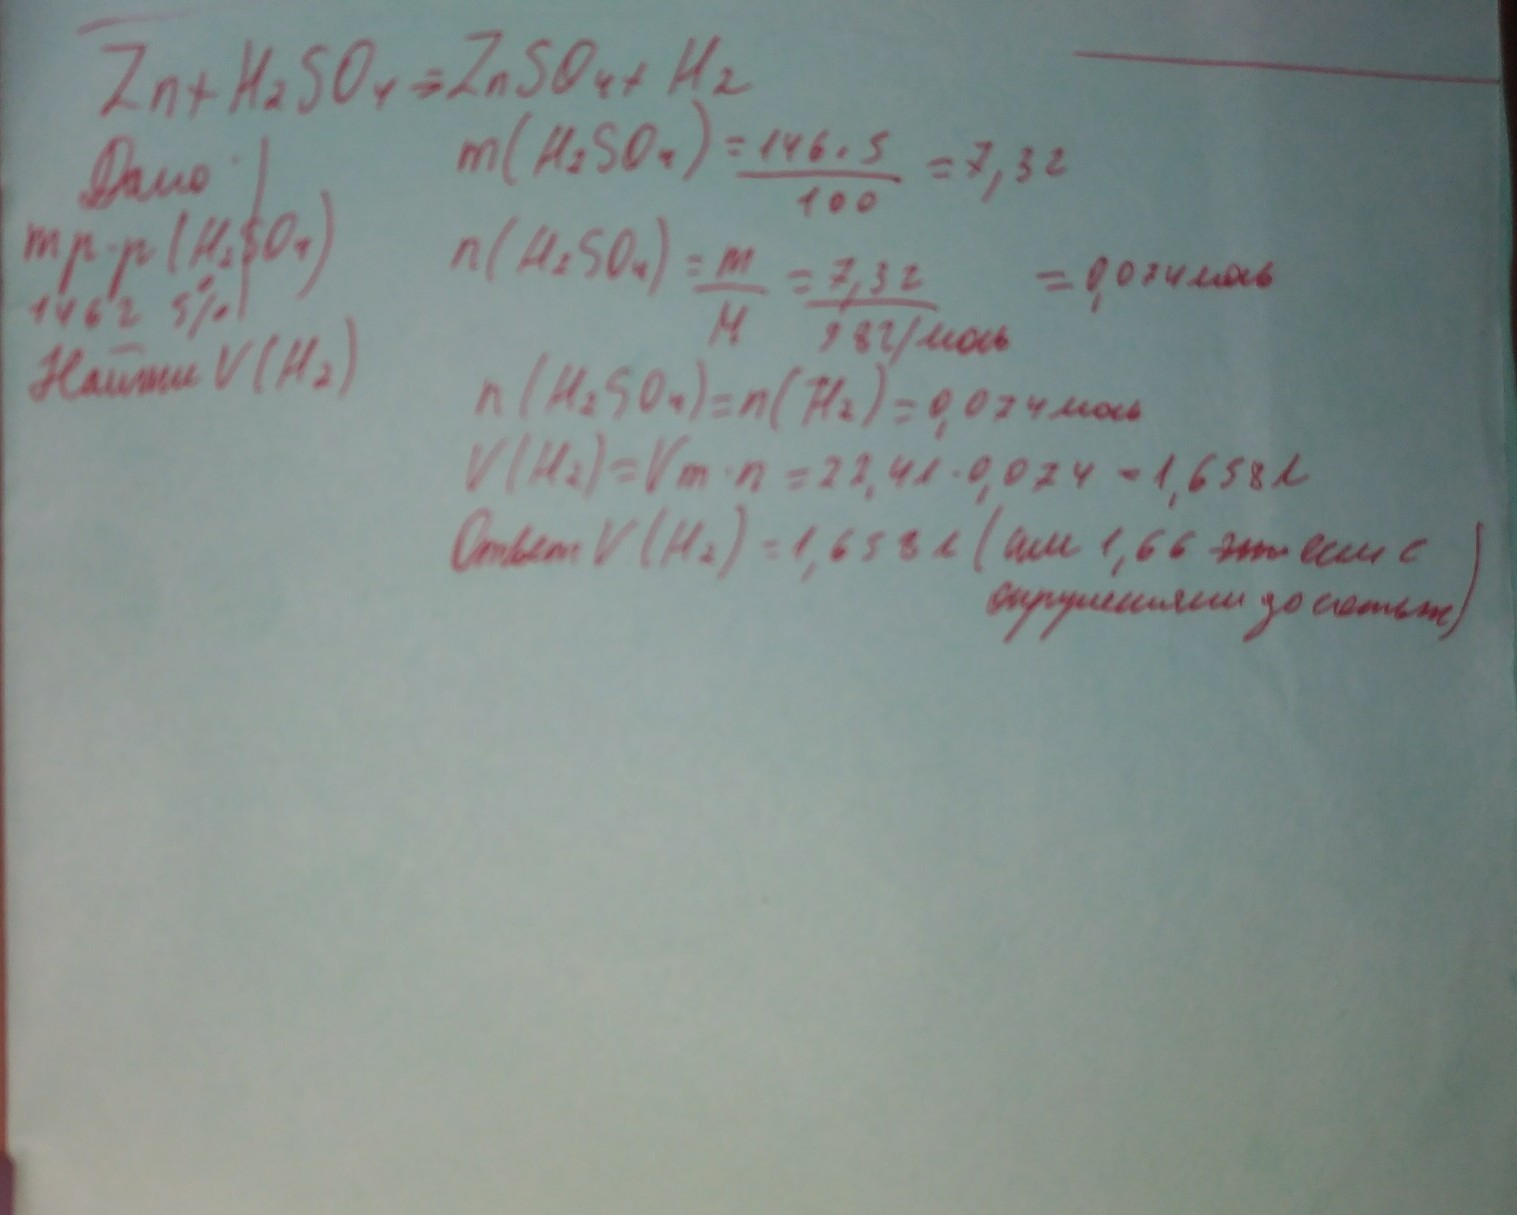 Zn + H2SO4 = ZnSO4 + H2
Дано
m р-р (H2SO4)
146г 5%
Найти V(H2)
m(H2SO4) = 146·5/100 = 7,3г
n(H2SO4) = m/M = 7,3г/98г/моль = 0,074моль
n(H2SO4) = n(H2) = 0,074моль
V(H2) = Vm·n = 22,4л·0,074 = 1,658л
Ответ V(H2) = 1,658л (или 1,66 если с
округлениями до сотых)